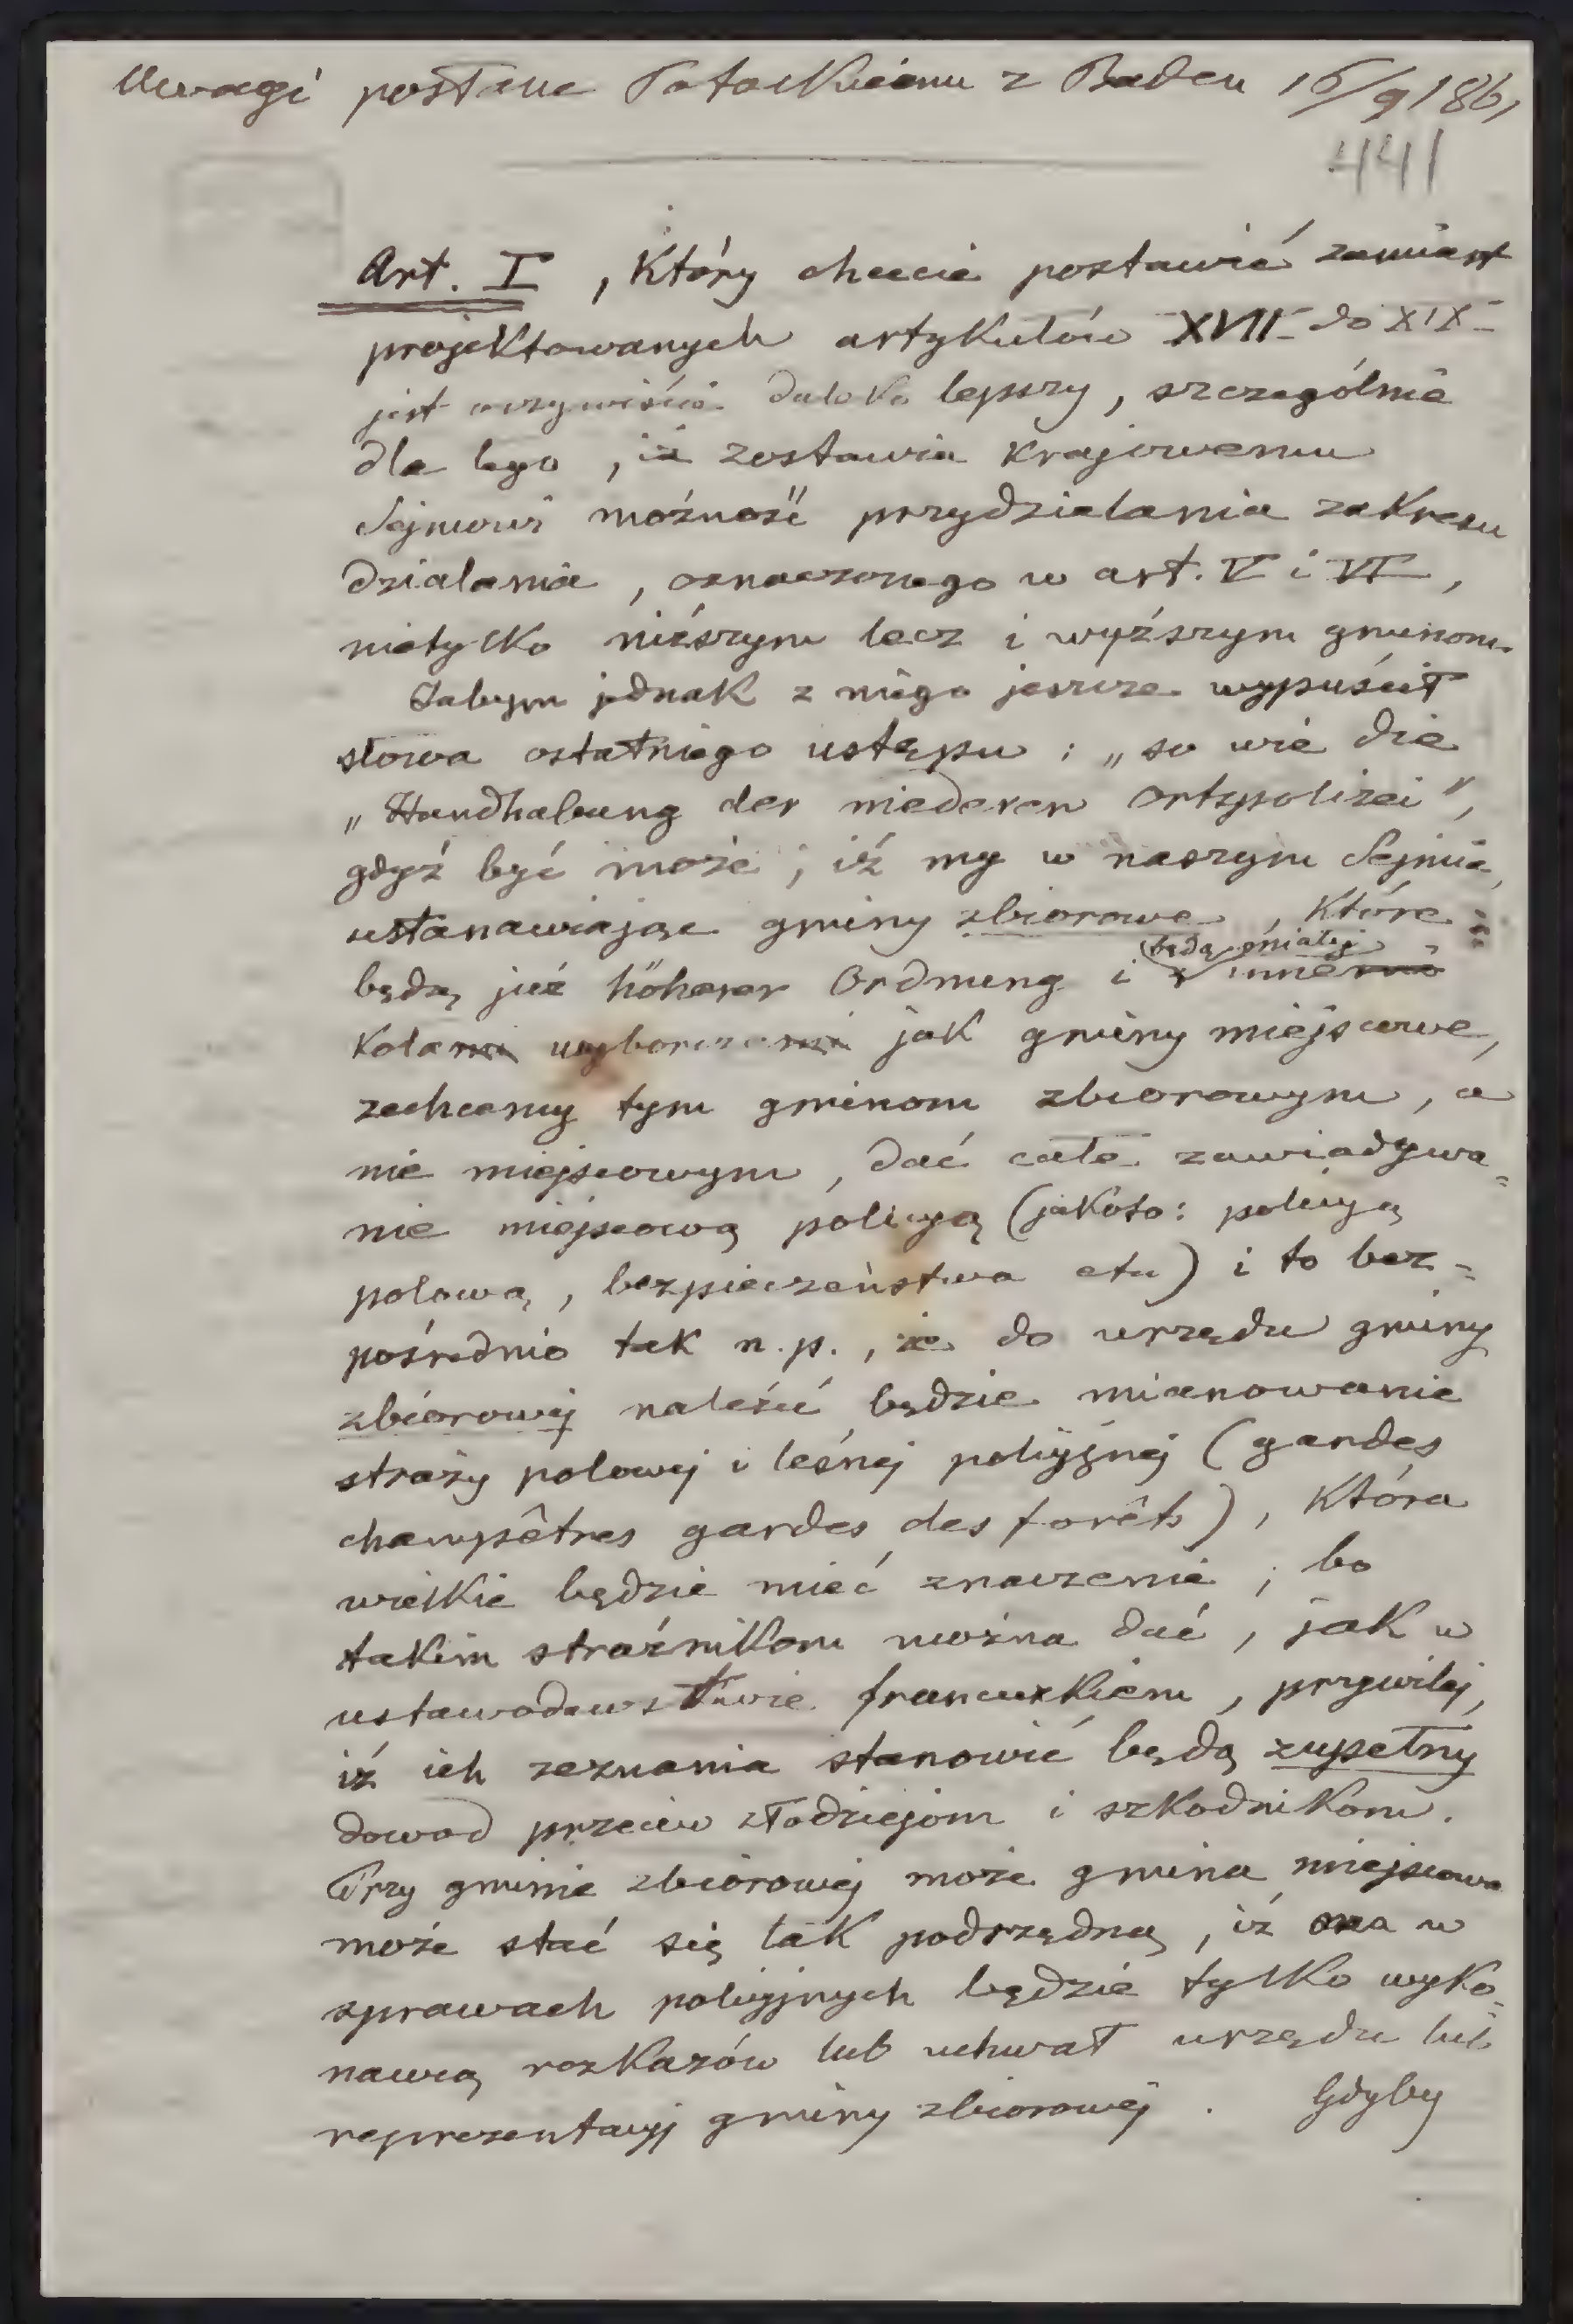 Uwagi posłane Potockiemu z Baden 15/9 1861
441
Art. I, który chcecie postawić zamiast
projektowanych artykułów XVII do XIX
jest oczywiście daleko lepszy, szczególnie
dla tego, iż zostawia krajowemu
Sejmowi możność przydzielania zakresu
działania, oznaczonego w art. V i VI,
nietylko niższym lecz i wyższym gminom.
Jabym jednak z niego jeszcze wypuścił
słowa ostatniego ustępu: „so wie die
„Handhabung der niederen Ortspolizei",
gdyż być może, iż my w naszym Sejmie,
ustanawiając gminy zbiorowe, które
będą już höherer Ordnung i
będą miały inne
koła wyborcze jak gminy miejscowe,
zechcemy tym gminom zbiorowym, a
nie miejscowym, dać całe zawiadywa-
nie miejscową policyą (jakoto: policyą
polową, bezpieczeństwa etc) i to bez-
pośrednio tak n.p., że do urzędu gminy
zbiorowej należéć będzie mianowanie
straży polowej i leśnej policyjnej (gardes
champêtres gardes des forêts), która
wielkie będzie mieć znaczenie; bo
takim strażnikom można dać, jak w
ustawodawstwie francuzkiem, przywilej,
iż ich zeznania stanowić będą zupełny
dowod przeciw złodziejom i szkodnikom.
Przy gminie zbiorowej może gmina miejscowa
może stać się tak podrzędną, iż ona w
sprawach policyjnych będzie tylko wyko-
nawcą rozkazów lub uchwał urzędu lub
reprezentacyj gminy zbiorowej. Gdyby